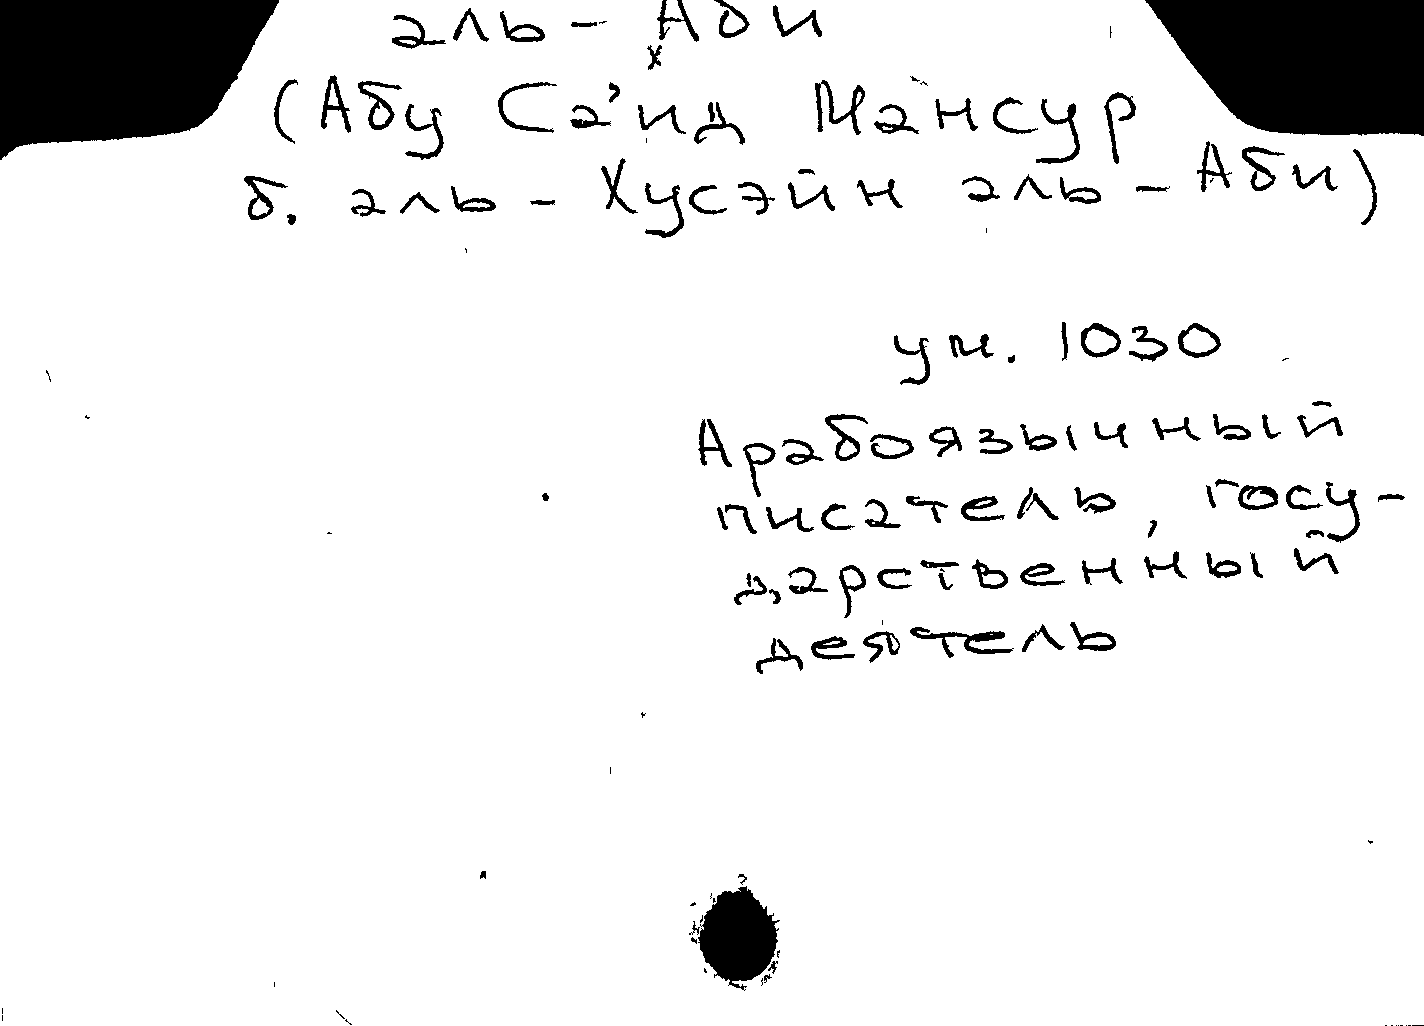 аль-Аби
х
(Абу Са'ид Мансур
б. аль-Хусэйн аль-Аби)
ум. 1030
Арабоязычный
писатель, госу-
дарственный
деятель